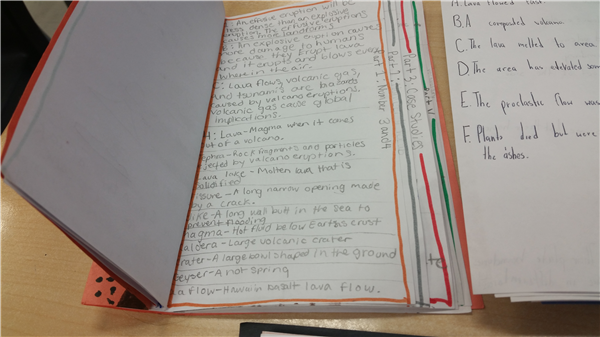 An effusive eruption will be
less dense than an explosive
eruption. The effusive eruptions
landforms.
E: An explosive eruption causes
more damage to humans
because they erupt lava
and it erupts and blows everywhere in the air.
C: Lava flows, volcanic gas,
and tsunamis are hazards
caused by volcano eruptions.
volcanic gas cause global
implications.
4: Lava-Magma when it comes
out of a volcano.
ephra-Rock fragments and particles
ejected by volcano eruptions.
ava lake-Molten lava that is
solidified
issure-A long narrow opening made
by a crack.
ike-A long wall built in the sea to
prevent flooding
magma-Hot fluid below Earth's crust
aldera-Large volcanic crater
rater-A large bowl shaped in the ground
geyser-A hot spring
a flow-Hawaiin basalt lava flow.
Part 1: Number 3 and 4
Part 2:
Part 3: Case Studies
Part
Pt
A. Lava flowed east.
B. A composted volcano
C. The lava melted to area.
D. The area has
E. The proclastic flow was
F. Plants died but were
the ashes.